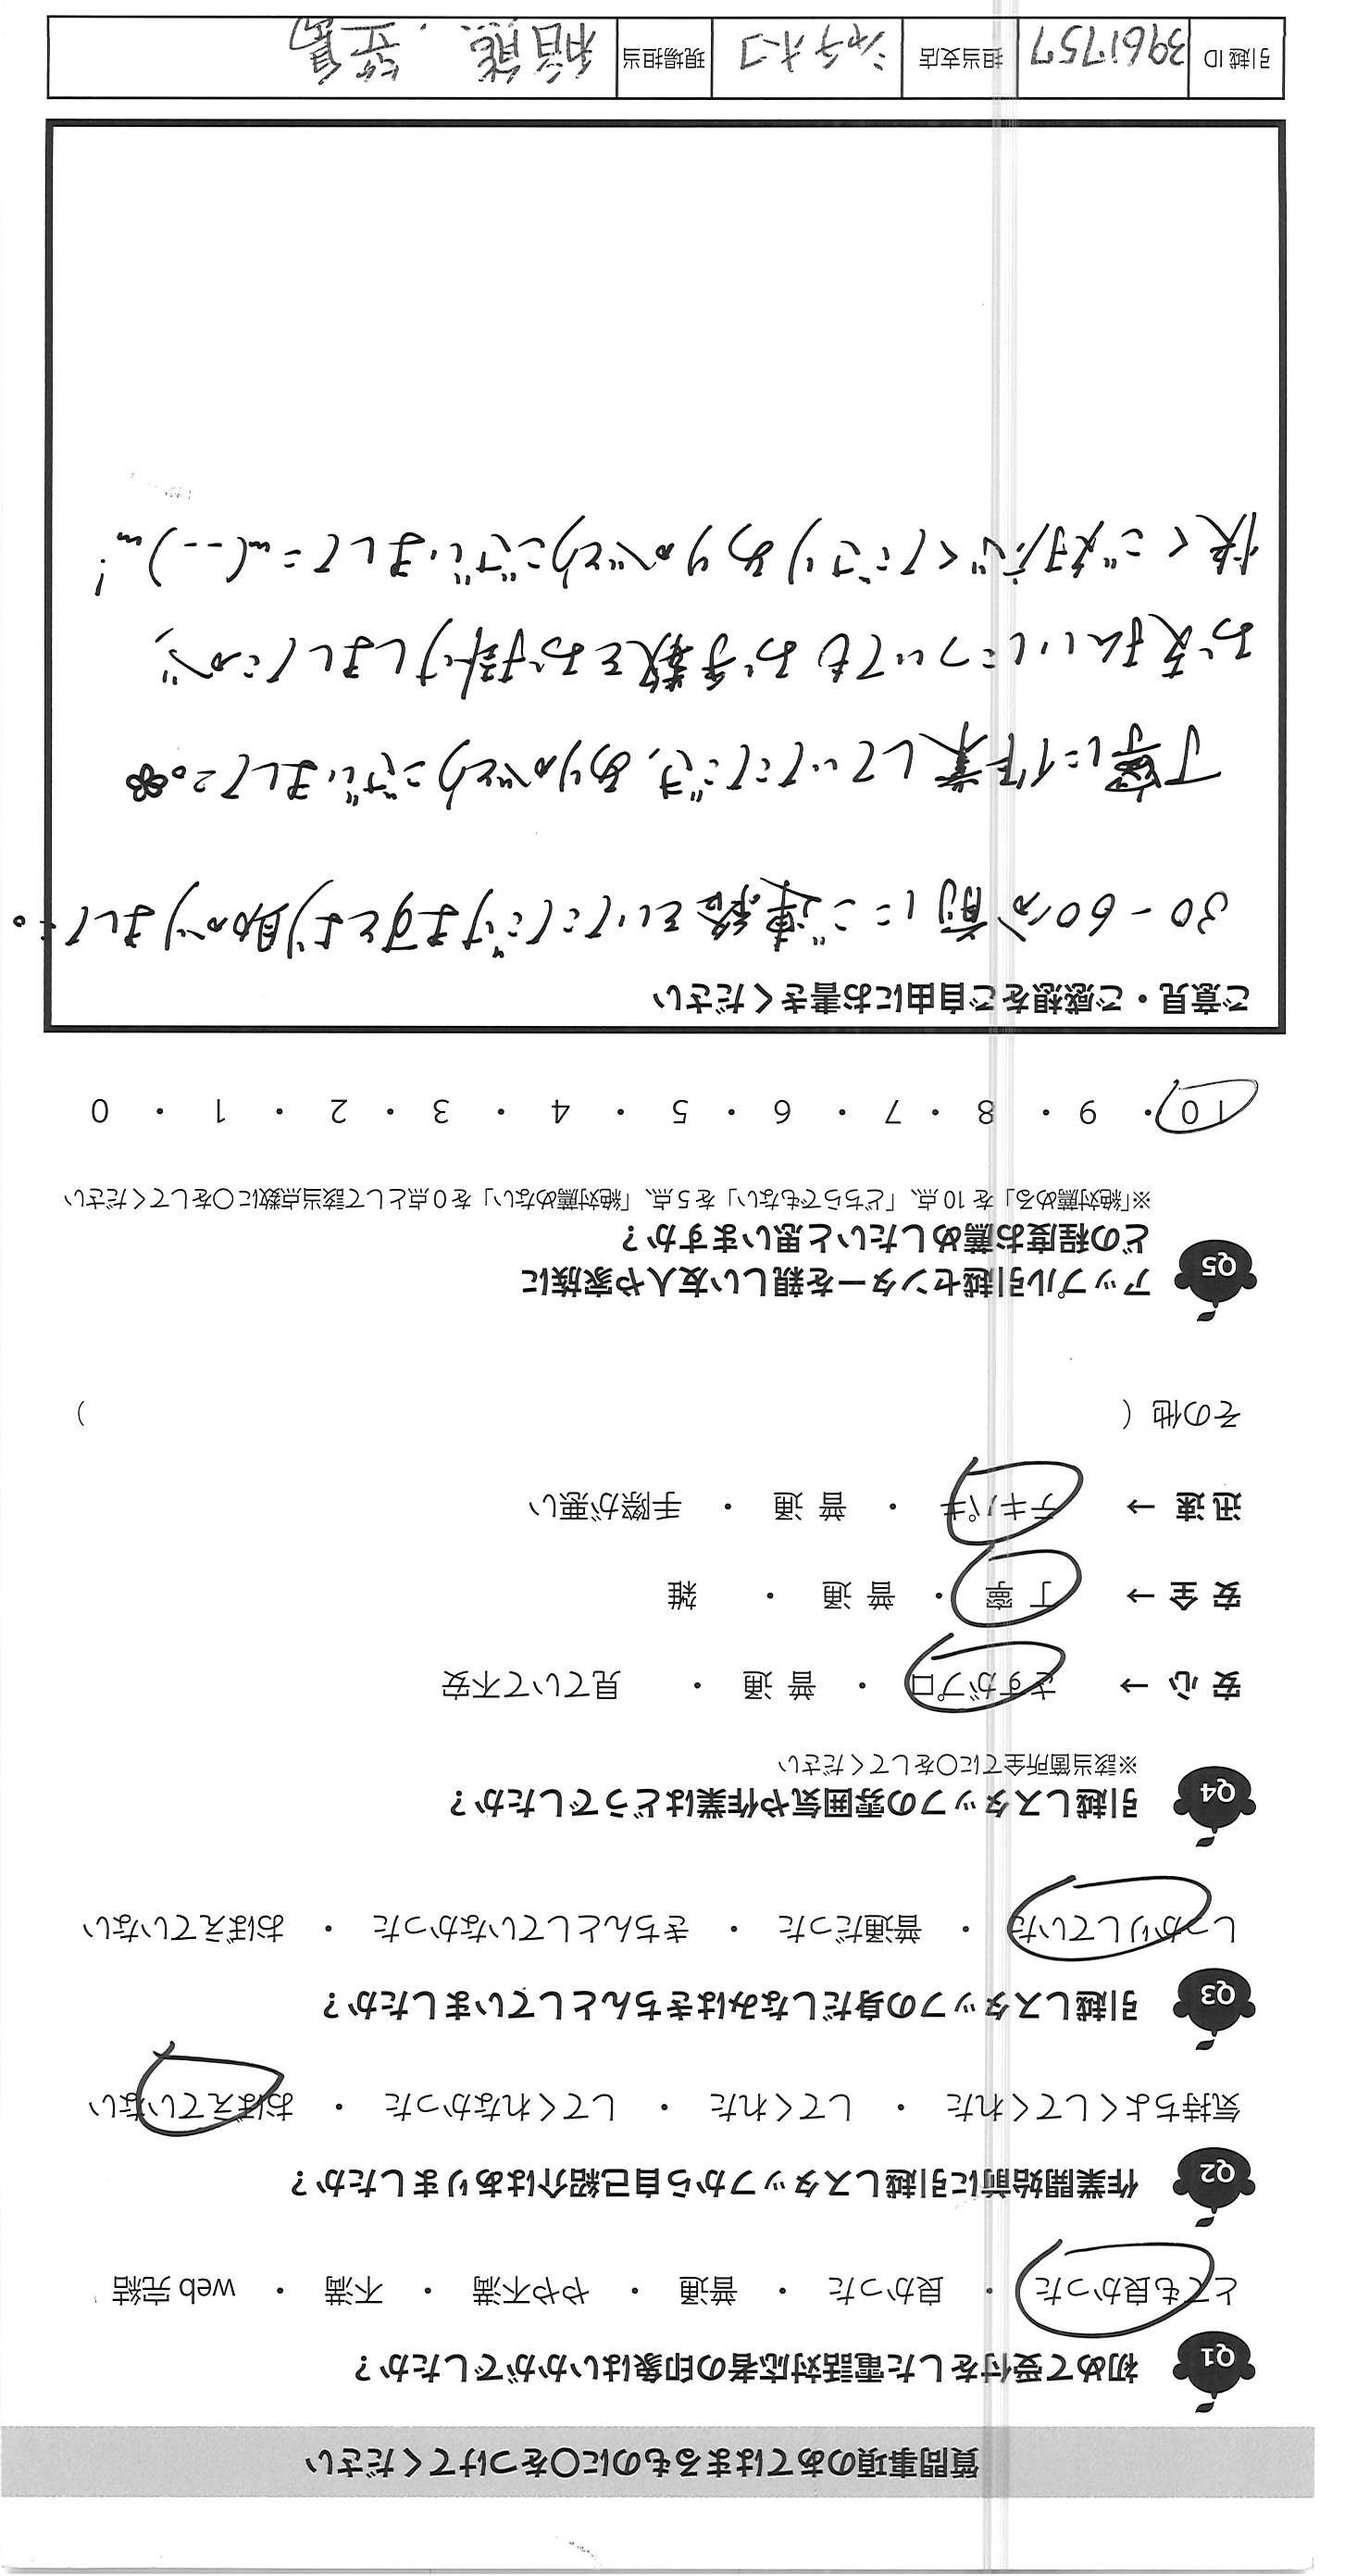 質問事項のあてはまるものに〇をつけてください
Q1 初めて受付をした電話対応者の印象はいかがでしたか？
とても良かった ・ 良かった ・ 普通 ・ やや不満 ・ 不満 ・ web 完結
Q2 作業開始前に引越しスタッフから自己紹介はありましたか？
気持ちよくしてくれた ・ してくれた ・ してくれなかった ・ おぼえていない
Q3 引越しスタッフの身だしなみはきちんとしていましたか？
しっかりしていた ・ 普通だった ・ きちんとしていなかった ・ おぼえていない
Q4 引越しスタッフの雰囲気や作業はどうでしたか？
※該当箇所全てに〇をしてください
安心 → さすがプロ ・ 普通 ・ 見ていて不安
安全 → 丁寧 ・ 普通 ・ 雑
迅速 → テキパキ ・ 普通 ・ 手際が悪い
その他（ ）
Q5 アップル引越センターを親しい友人や家族に
どの程度お薦めしたいと思いますか？
※「絶対薦める」を 10 点、「どちらでもない」を 5 点、「絶対薦めない」を 0 点として該当点数に〇をしてください
10 ・ 9 ・ 8 ・ 7 ・ 6 ・ 5 ・ 4 ・ 3 ・ 2 ・ 1 ・ 0
ご意見・ご感想をご自由にお書きください
30-60分前にご連絡をいただけますとより助かりました。
丁寧に作業していただき、ありがとうございました。
お支払いについてもお手数をお掛けしましたが、
快くご対応くださりありがとうございましたm(--)m!
引越 ID 3961757 担当支店 シャチネコ 現場担当 稲熊、笠島